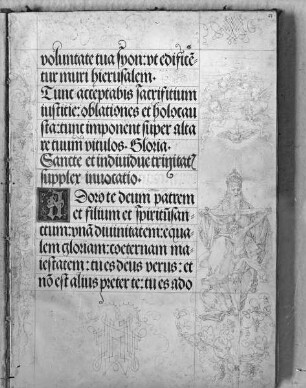 voluntate tua syon: vt edificē-
tur muri hierusalem.
Tunc acceptabis sacrificium
iusticie: oblationes et holocau
sta: tunc imponent super alta
re tuum vitulos. Gloria.
Sancte et indiuidue trinitatꝫ
supplex inuocatio.
Adoro te deum patrem
et filium et spiritūsan-
ctum: vnā diuinitatem: equa-
lem gloriam: coeternam ma-
iestatem: tu es deus verus: et
nō est alius preter te: tu es ado